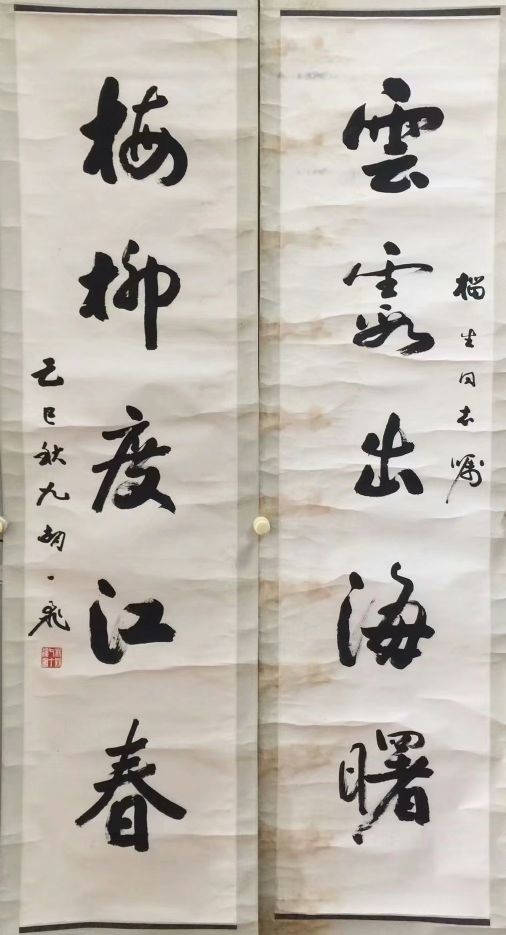 生同志嘱
雲霞出海曙
梅柳度江春
乙巳秋九
一飛